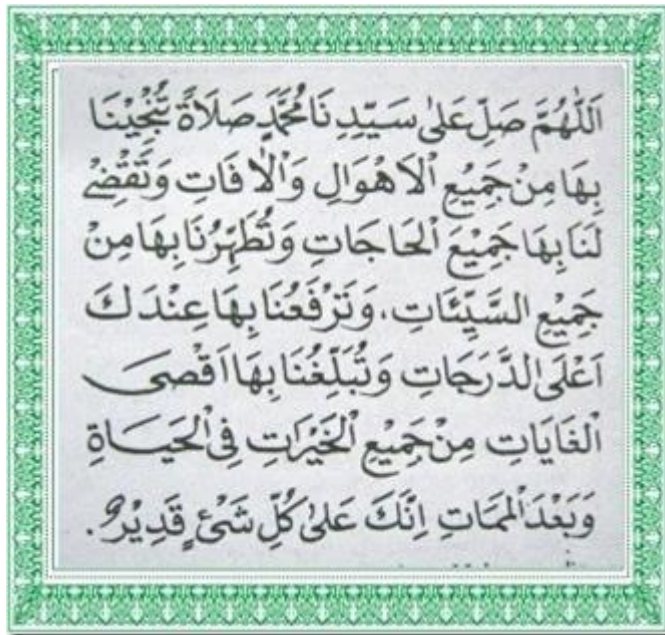 اَللّٰهُمَّ صَلِّ عَلٰى سَيِّدِنَا مُحَمَّدٍ صَلَاةً تُنْجِيْنَا
بِهَا مِنْ جَمِيْعِ الْاَهْوَالِ وَالْاٰفَاتِ وَتَقْضِيْ
لَنَا بِهَا جَمِيْعَ الْحَاجَاتِ وَتُطَهِّرُنَا بِهَا مِنْ
جَمِيْعِ السَّيِّئَاتِ، وَتَرْفَعُنَا بِهَا عِنْدَكَ
اَعْلَى الدَّرَجَاتِ وَتُبَلِّغُنَا بِهَا اَقْصَى
الْغَايَاتِ مِنْ جَمِيْعِ الْخَيْرَاتِ فِى الْحَيَاةِ
وَبَعْدَ الْمَمَاتِ اِنَّكَ عَلٰى كُلِّ شَيْئٍ قَدِيْرٌ.